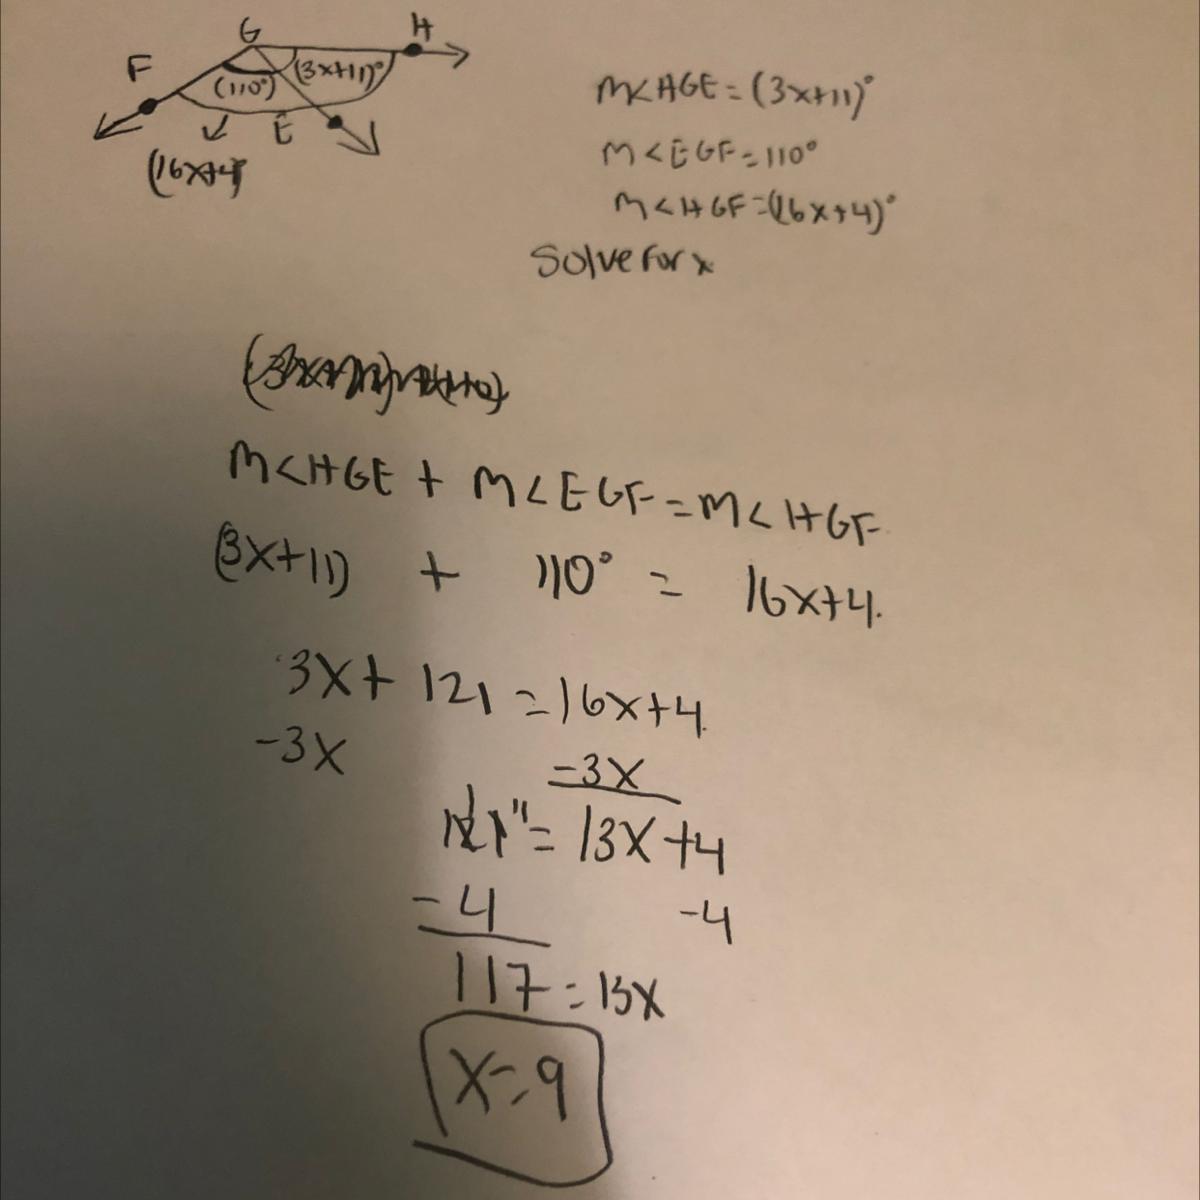 G H
F (110°) (3x+11)°
E
(16x+4)
m<HGE = (3x+11)°
m<EGF = 110°
m<HGF = (16x+4)°
Solve for x
m<HGE + m<EGF = m<HGF
(3x+11) + 110° = 16x+4.
3x + 121 = 16x+4
-3x -3x
= 13x+4
-4 -4
117 = 13x
x = 9